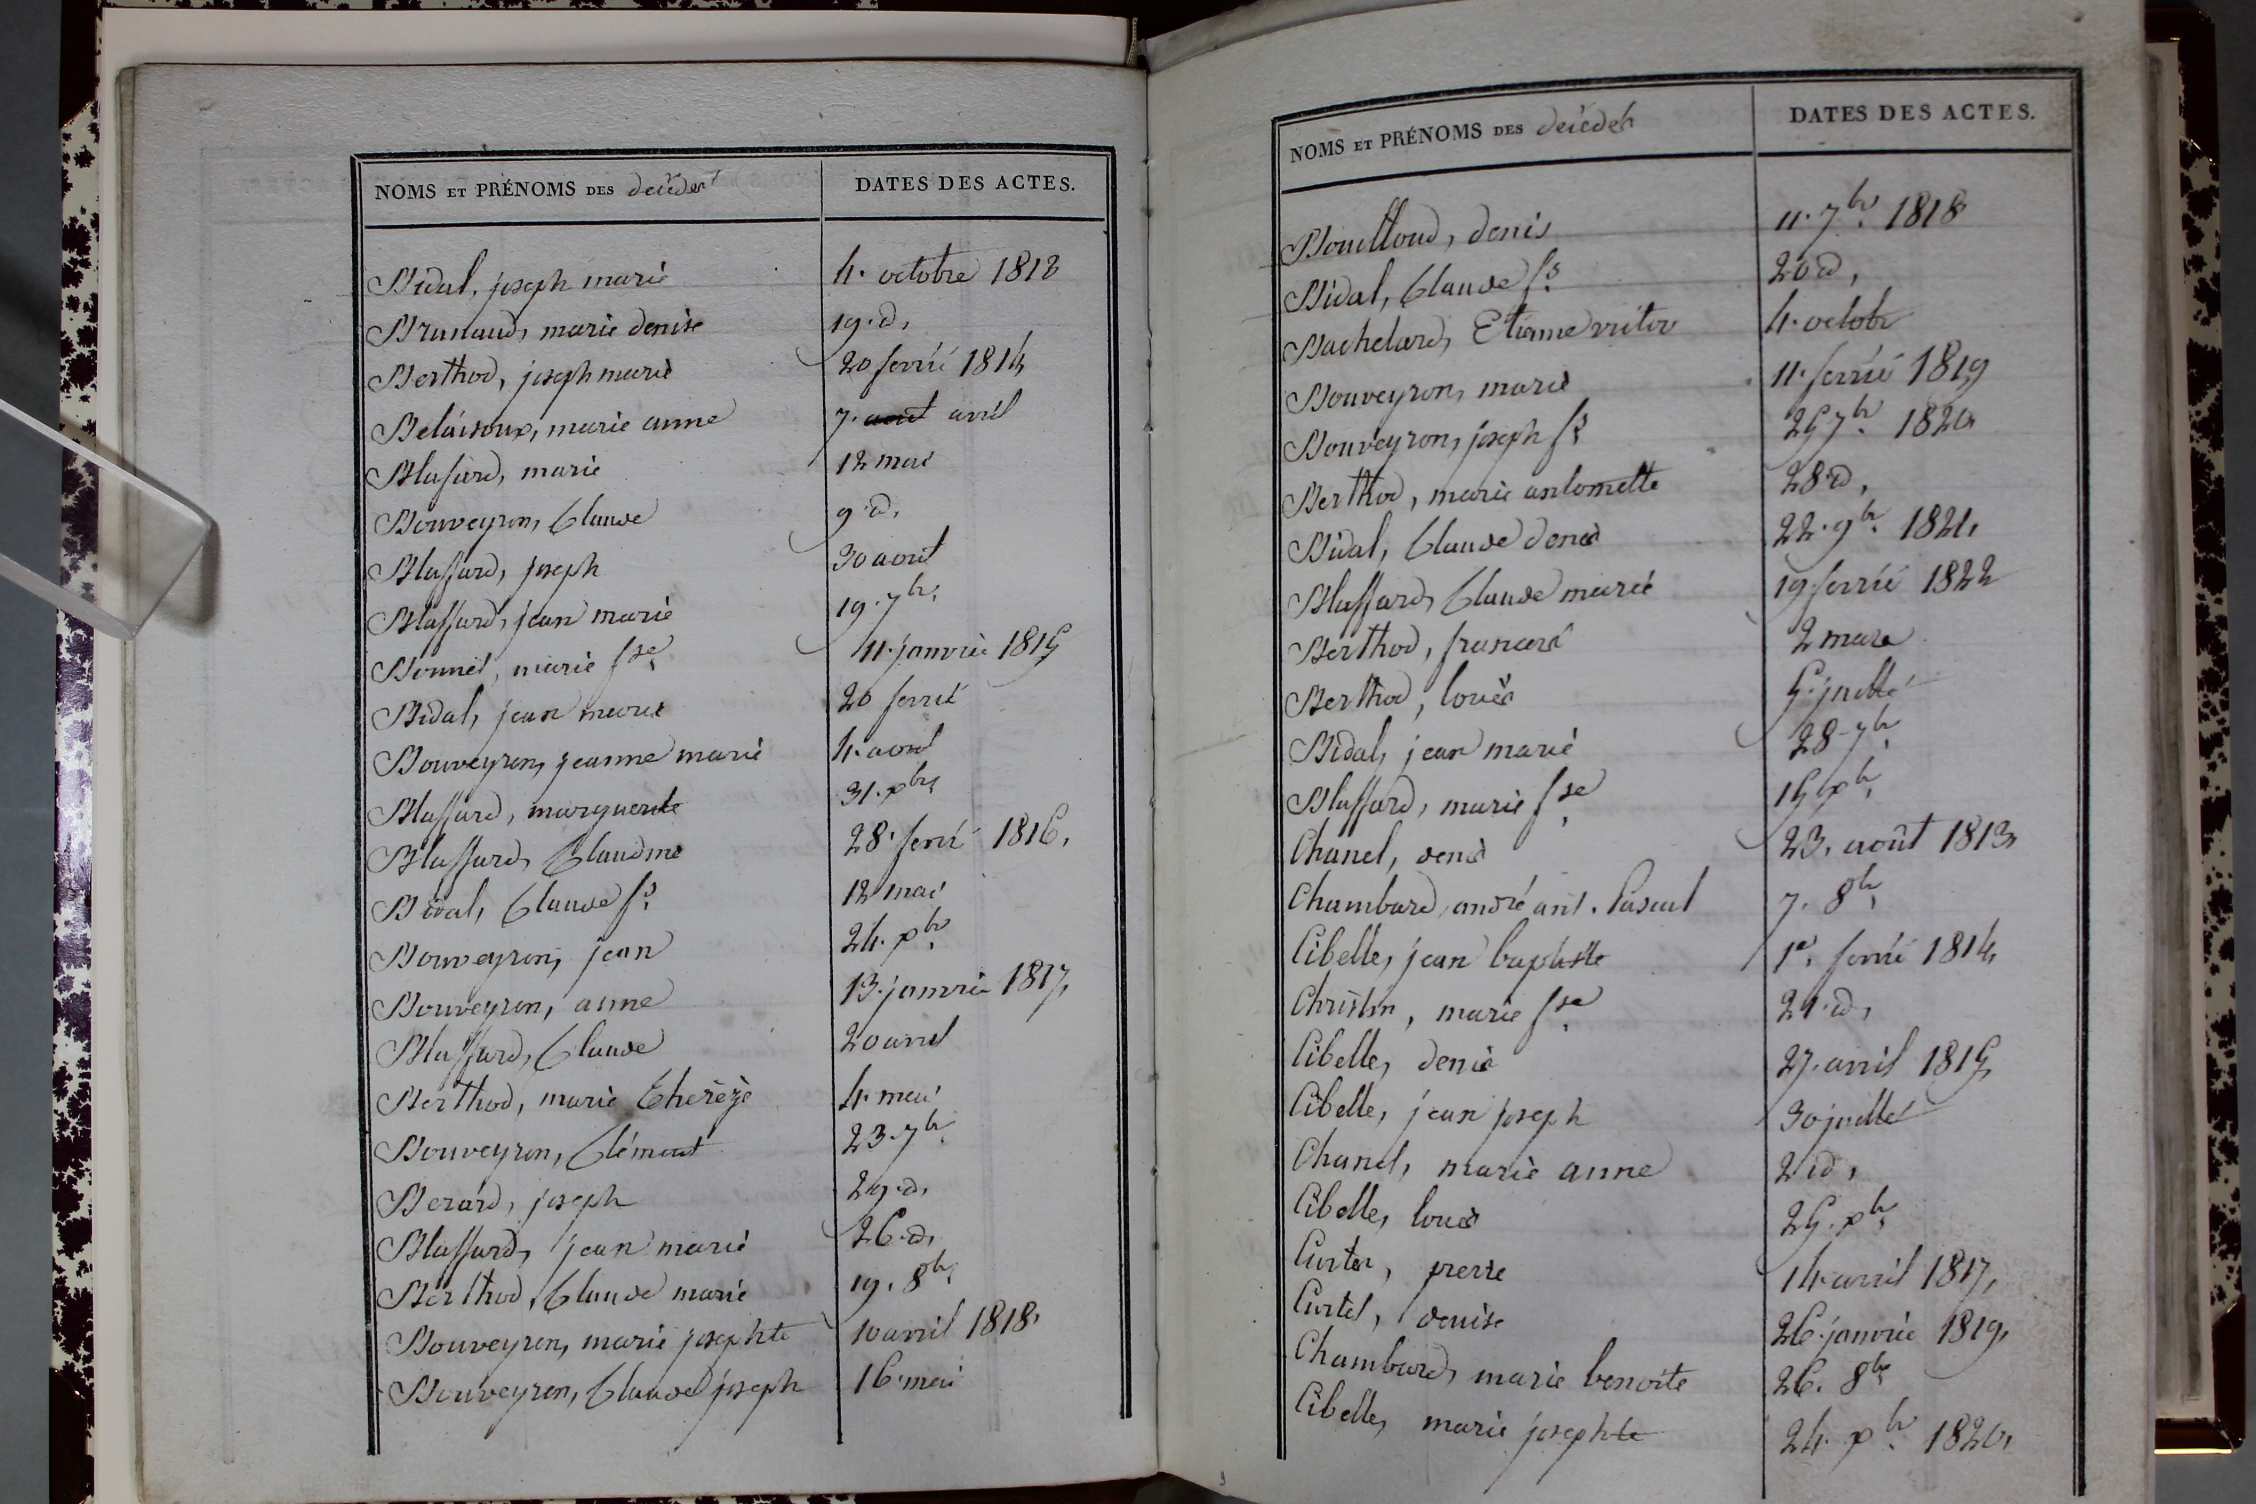 NOMS ET PRÉNOMS DES décédés DATES DES ACTES.
Bidal, joseph marie 4. octobre 1813
Brunaud, marie denise 19. d,
Berthod, joseph marie 20 fevrié 1814
Belaisoux, marie anne 7. aout avril
Blassard, marie 12 mai
Bouveyron, Claude 9. d,
Blassard, joseph 30 aout
Blassard, jean marie 19. 7br,
Bonnet, marie fse 11. janvié 1815
Bidal, jean marie 20 fevrié
Bouveyron, jeanne marie 4. aout
Blassard, marguerite 31. xbre
Blassard, Claudine 28. fevrié 1816,
Bidal, Claude fs 12 mai
Bouveyron, jean 24. xbr
Bouveyron, anne 13. janvié 1817,
Blassard, Claude 20 avril
Berthod, marie thérèze 4. mai
Bouveyron, Clément 23. 7br
Berard, joseph 29. d,
Blassard, jean marie 26. d,
Berthod, Claude marie 19. 8br,
Bouveyron, marie josephte 10 avril 1818,
Bouveyron, Claude joseph 16. mai
NOMS ET PRÉNOMS DES décédés DATES DES ACTES.
Bouilloud, denis 11. 7br. 1818
Bidal, Claude fs 20 d,
Bachelard, Etienne victor 4. octobr
Bouveyron, marie 11. fevrié 1819
Bouveyron, joseph fs 25 7br. 1820
Berthod, marie antoinette 28. d,
Bidal, Claude denis 22. 9br. 1821,
Blassard, Claude marie 19 fevrié 1822
Berthod, francois 2 mars
Berthod, louis 5. juillé
Bidal, jean marie 28. 7br
Blassard, marie fse 15 xbr,
Chanel, denis 23. août 1813
Chambard, andré ant. Pascal 7. 8br,
Cibelle, jean baptiste 1er, fevrié 1814,
Christin, marie fse 21. d,
Cibelle, denis 27. avril 1815,
Cibelle, jean joseph 30 juillé
Chanel, marie anne 2 d,
Cibelle, louis 25. xbr,
Curtet, pierre 14. avril 1817,
Curtet, denise 26. janvié 1819,
Chambard, marie benoite 26. 8br
Cibelle, marie josephte 24. xbr. 1820,